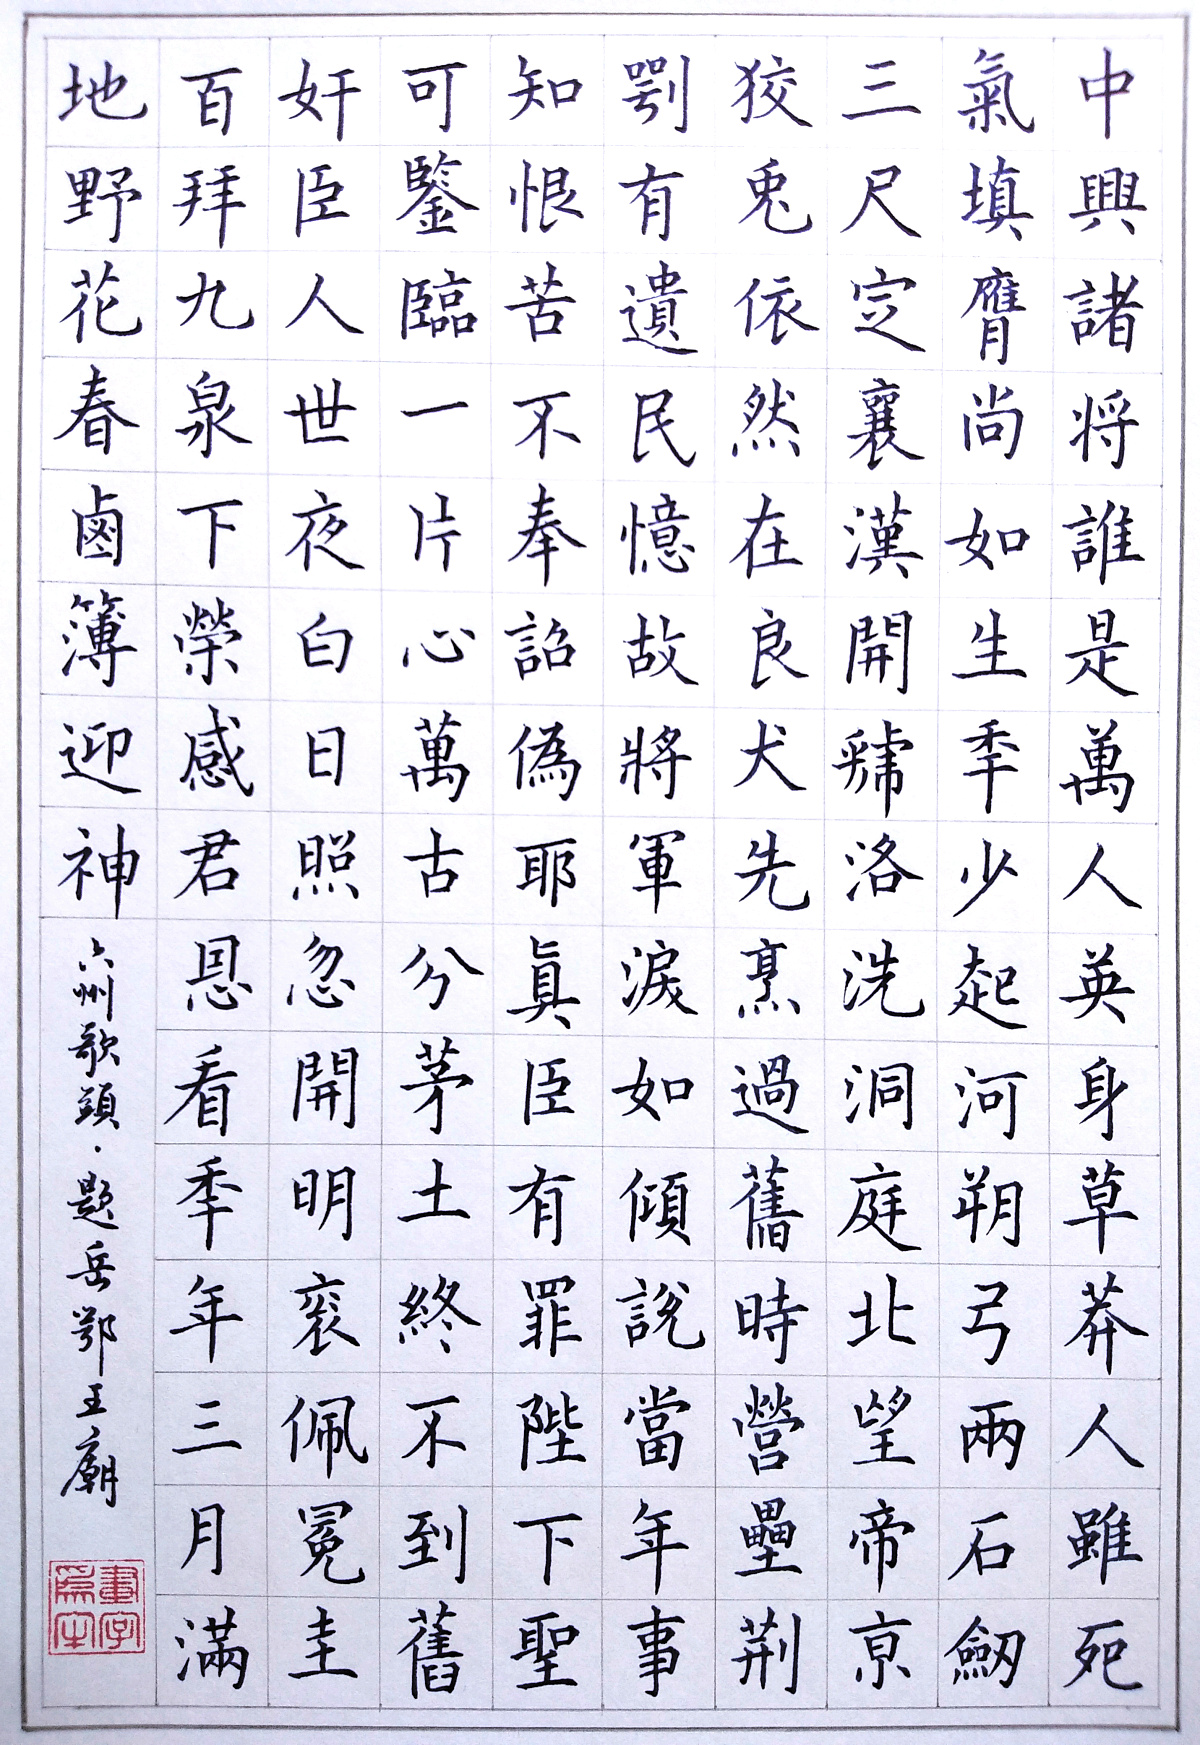 中興諸将誰是萬人英身草莽人雖死
氣填膺尚如生秊少起河朔弓兩石劒
三尺定襄漢開虢洛洗洞庭北望帝亰
狡兔依然在良犬先烹過舊時營壘荊
㓵有遺民憶故將軍淚如傾說當年事
知恨苦不奉詔偽耶眞臣有罪陛下聖
可鑒臨一片心萬古分茅土終不到舊
奸臣人世夜白日照忽開明衮佩冕圭
百拜九泉下榮感君恩看秊年三月滿
地野花春鹵簿迎神
六州歌頭·题岳鄂王廟